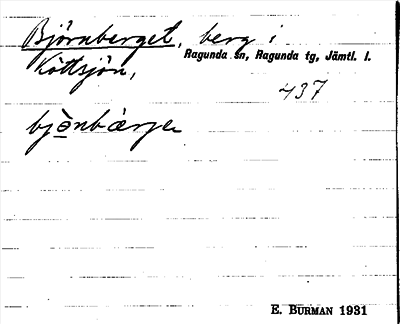 Björnberget, berg i
Ragunda sn, Ragunda tg, Jämtl. l.
Köttsjön,
437
bjò̱nbàrje
E. BURMAN 1931